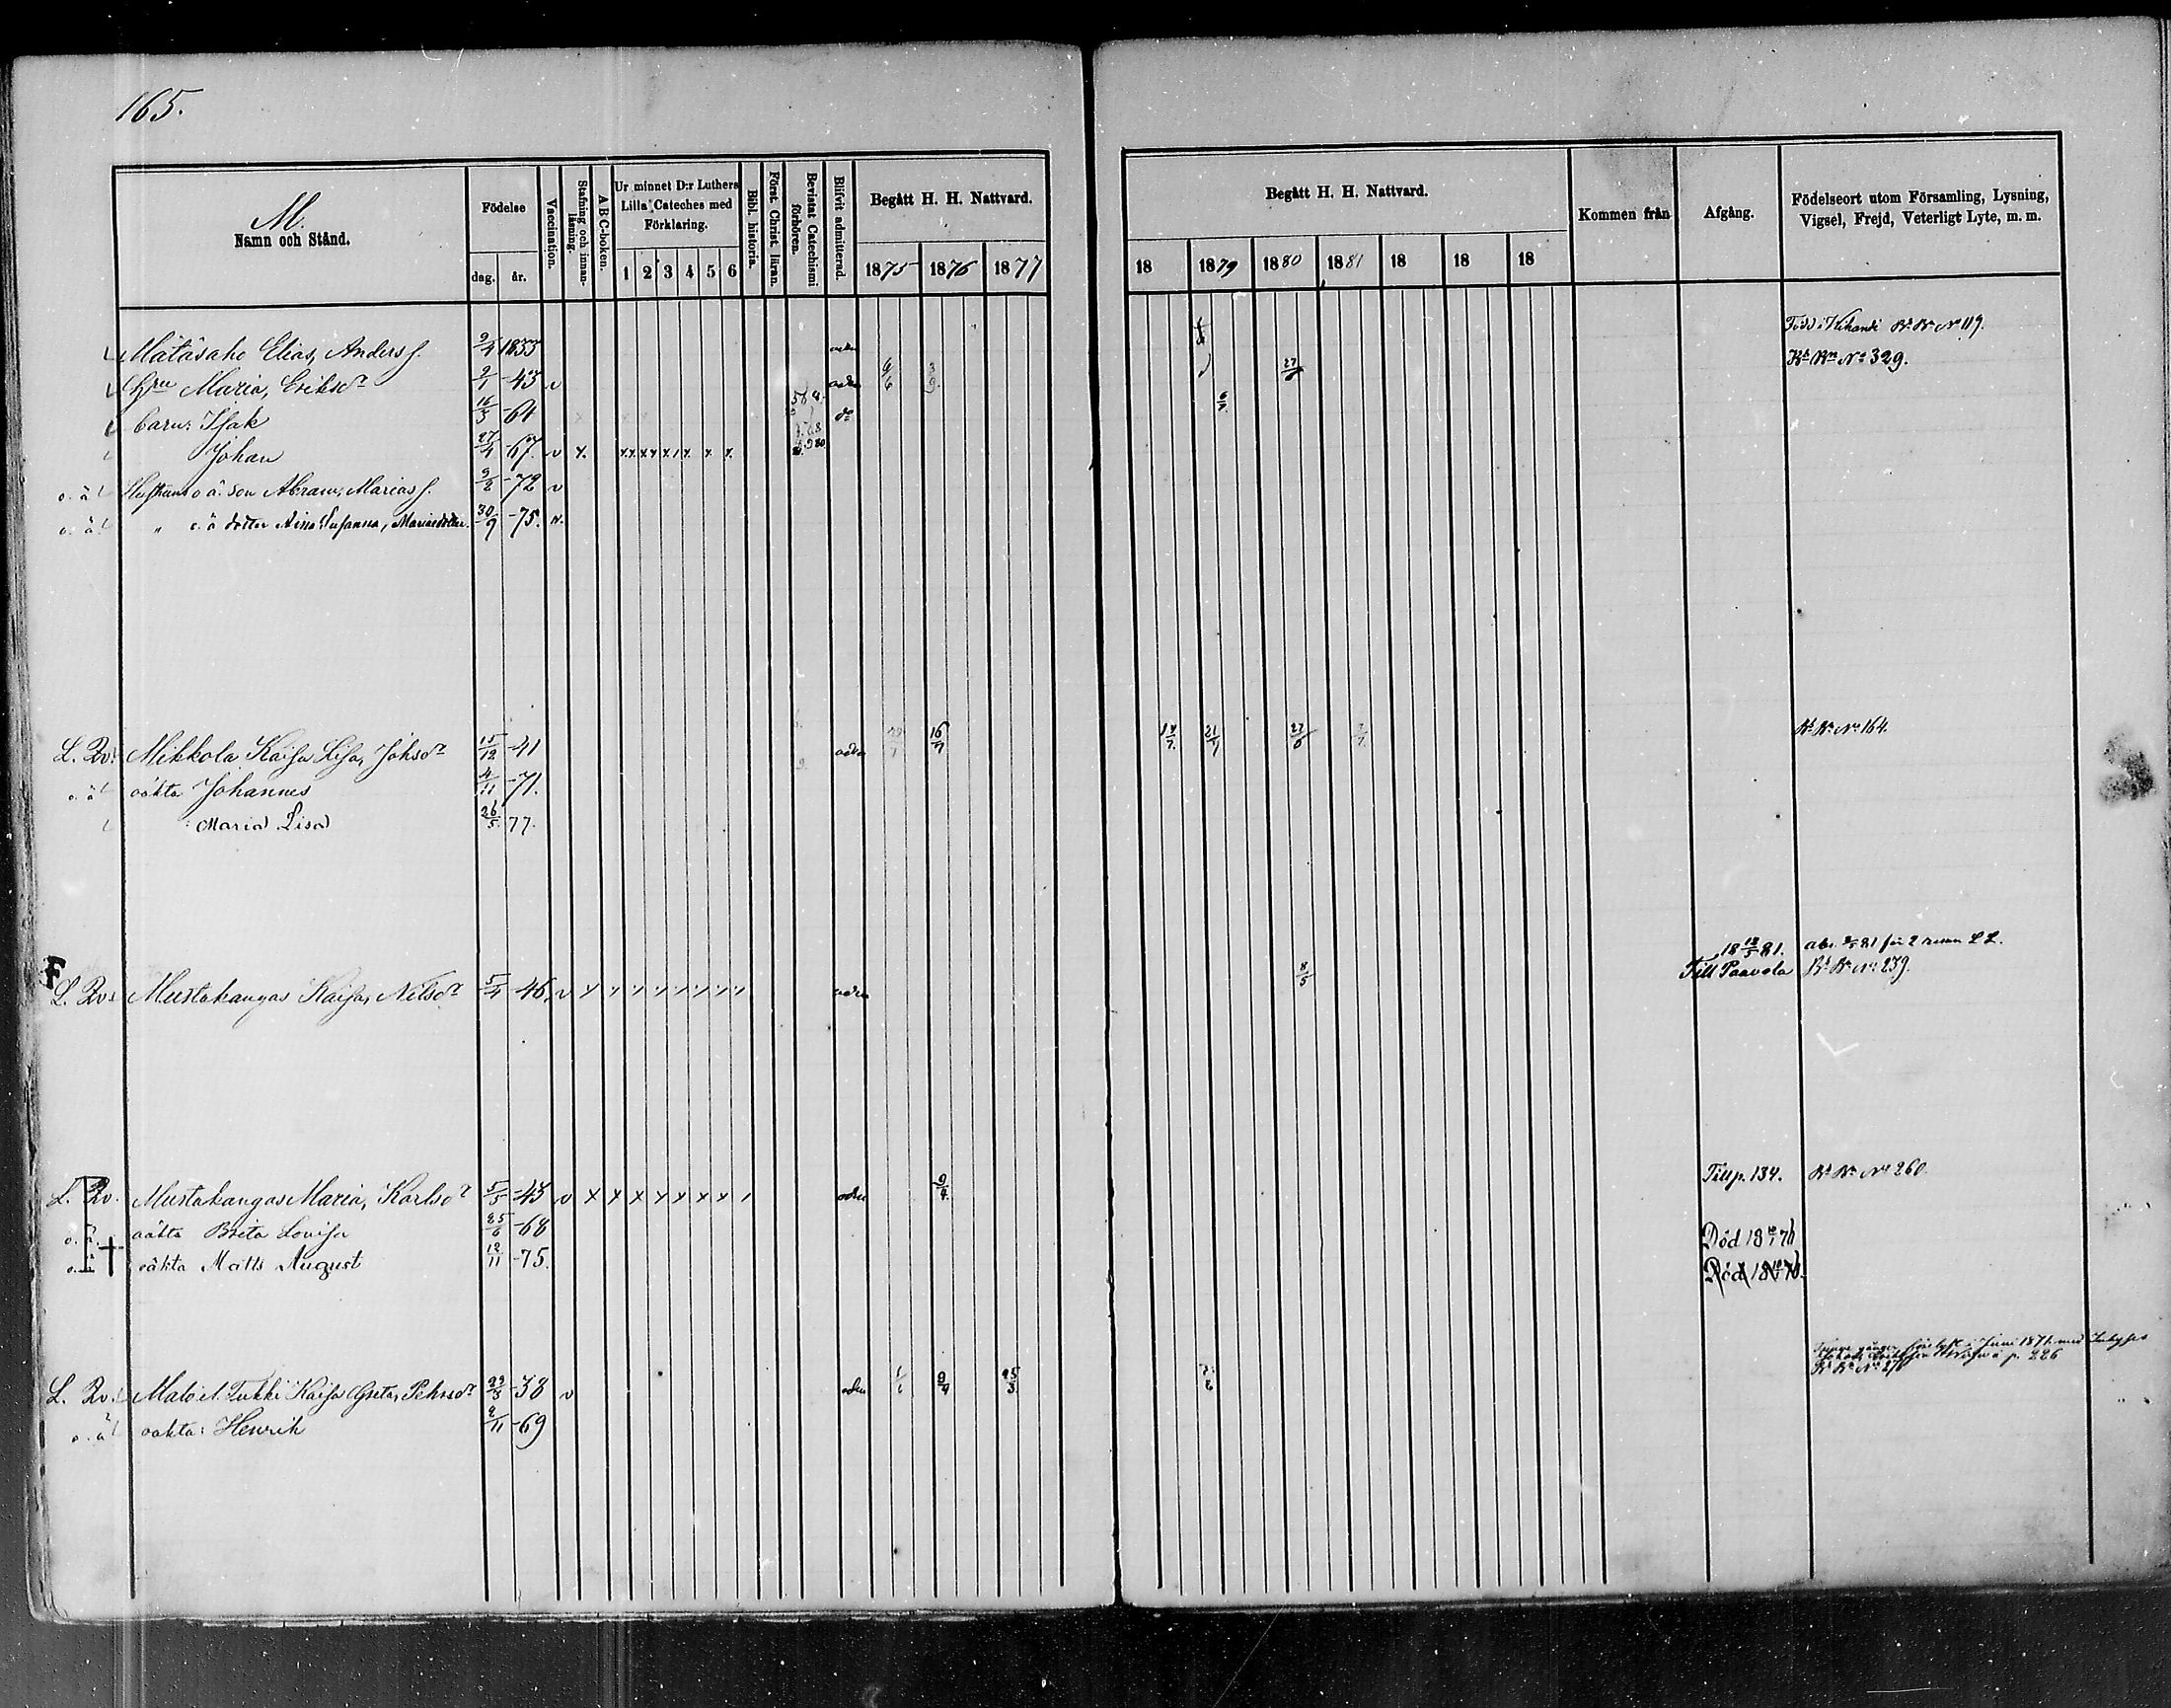 165.
M.
Namn och Stånd.
Födelse
dag. år.
Vaccination.
Stafning och innanläsning.
A B C-boken.
Ur minnet D:r Luthers Lilla Cateches med Förklaring.
1 2 3 4 5 6
Bibl. historia.
Först. Christ. läran.
Bevistat Catechismi förhören.
Blifvit admitterad.
Begått H. H. Nattvard.
1875 1876 1877
Begått H. H. Nattvard.
18 1879 1880 1881 18 18 18
Kommen från
Afgång.
Födelseort utom Församling, Lysning, Vigsel, Frejd, Veterligt Lyte, m. m.
Matäsaho Elias, Anders s. 9/4 1833 No 119.
Hru Maria, Eriksdr 2/1 -43 v 6/6 3/9 27/6 No 329.
barn: Isak 16/3 -64 do 6/7
Johan 27/4 -67. v x.
o. ä. Hustruns o ä. son Abram, Marias s. 9/2 -72 v
o. ä. " o. ä dotter Aina Susanna, Mariedotter. 30/9 -75. v.
L. Qv. Mikkola Kaisa Lisa, Johsdr 15/12 -41 16/7 14/7 21/7 27/6 No 164.
o. ä oäkta Johannes 4/11 -71.
Maria Lisa 26/5 77.
F
18 12/5 81. 81 för 2 L L.
L. Qv. Mustakangas Kaisa, Nilsdr 5/4 -46, v 8/5 Till Paavola No 239.
L. Qv. Mustakangas Maria, Karlsdr 5/5 -43 v x x x x x x x 9/4. Till p. 134. No 260
o. ä. oäkta Brita Lovisa 25/6 -68 Död 18 76
o. ä oäkta Matts August 12/11 -75. Död 18 76.
Juni 1871 med
p. 226
L. Qv. Malo el. Tukki Kaisa Greta, Pehrsdr 29/3 -38 v 9/4 25/3
o. ä oäkta: Henrik 2/11 -69